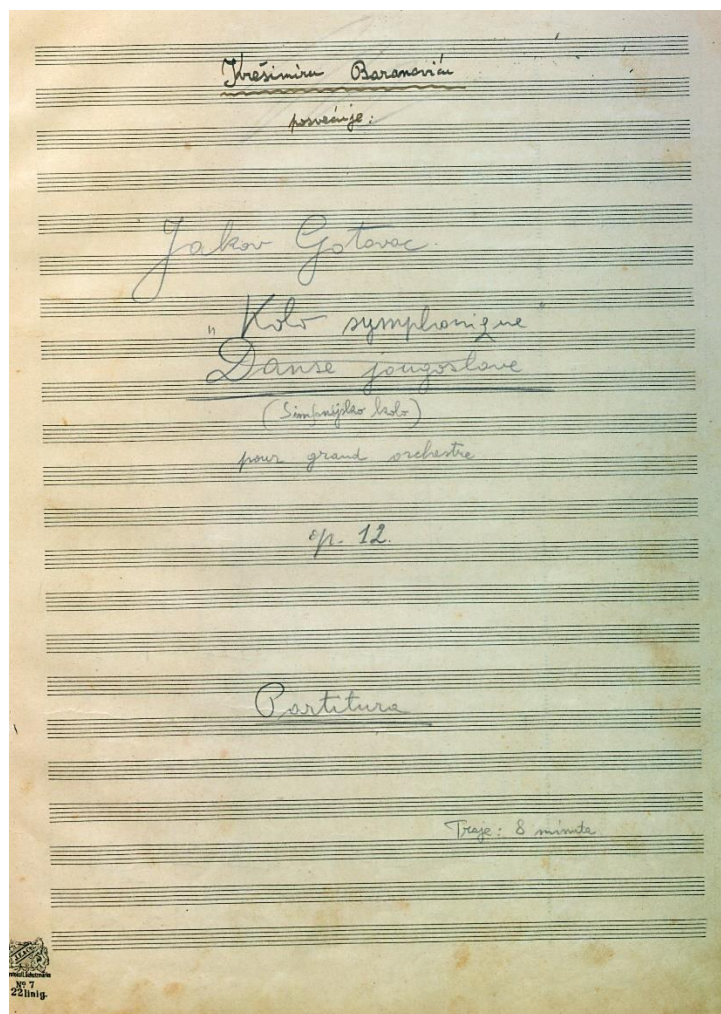 Krešimiru Baranoviću
posvećuje:
Jakov Gotovac.
"Kolo symphonique"
Danse jougoslave
(Simfonijsko kolo)
pour grand orchestre
op. 12.
Partitura
Traje: 8 minuta
Nº 7
22linig.